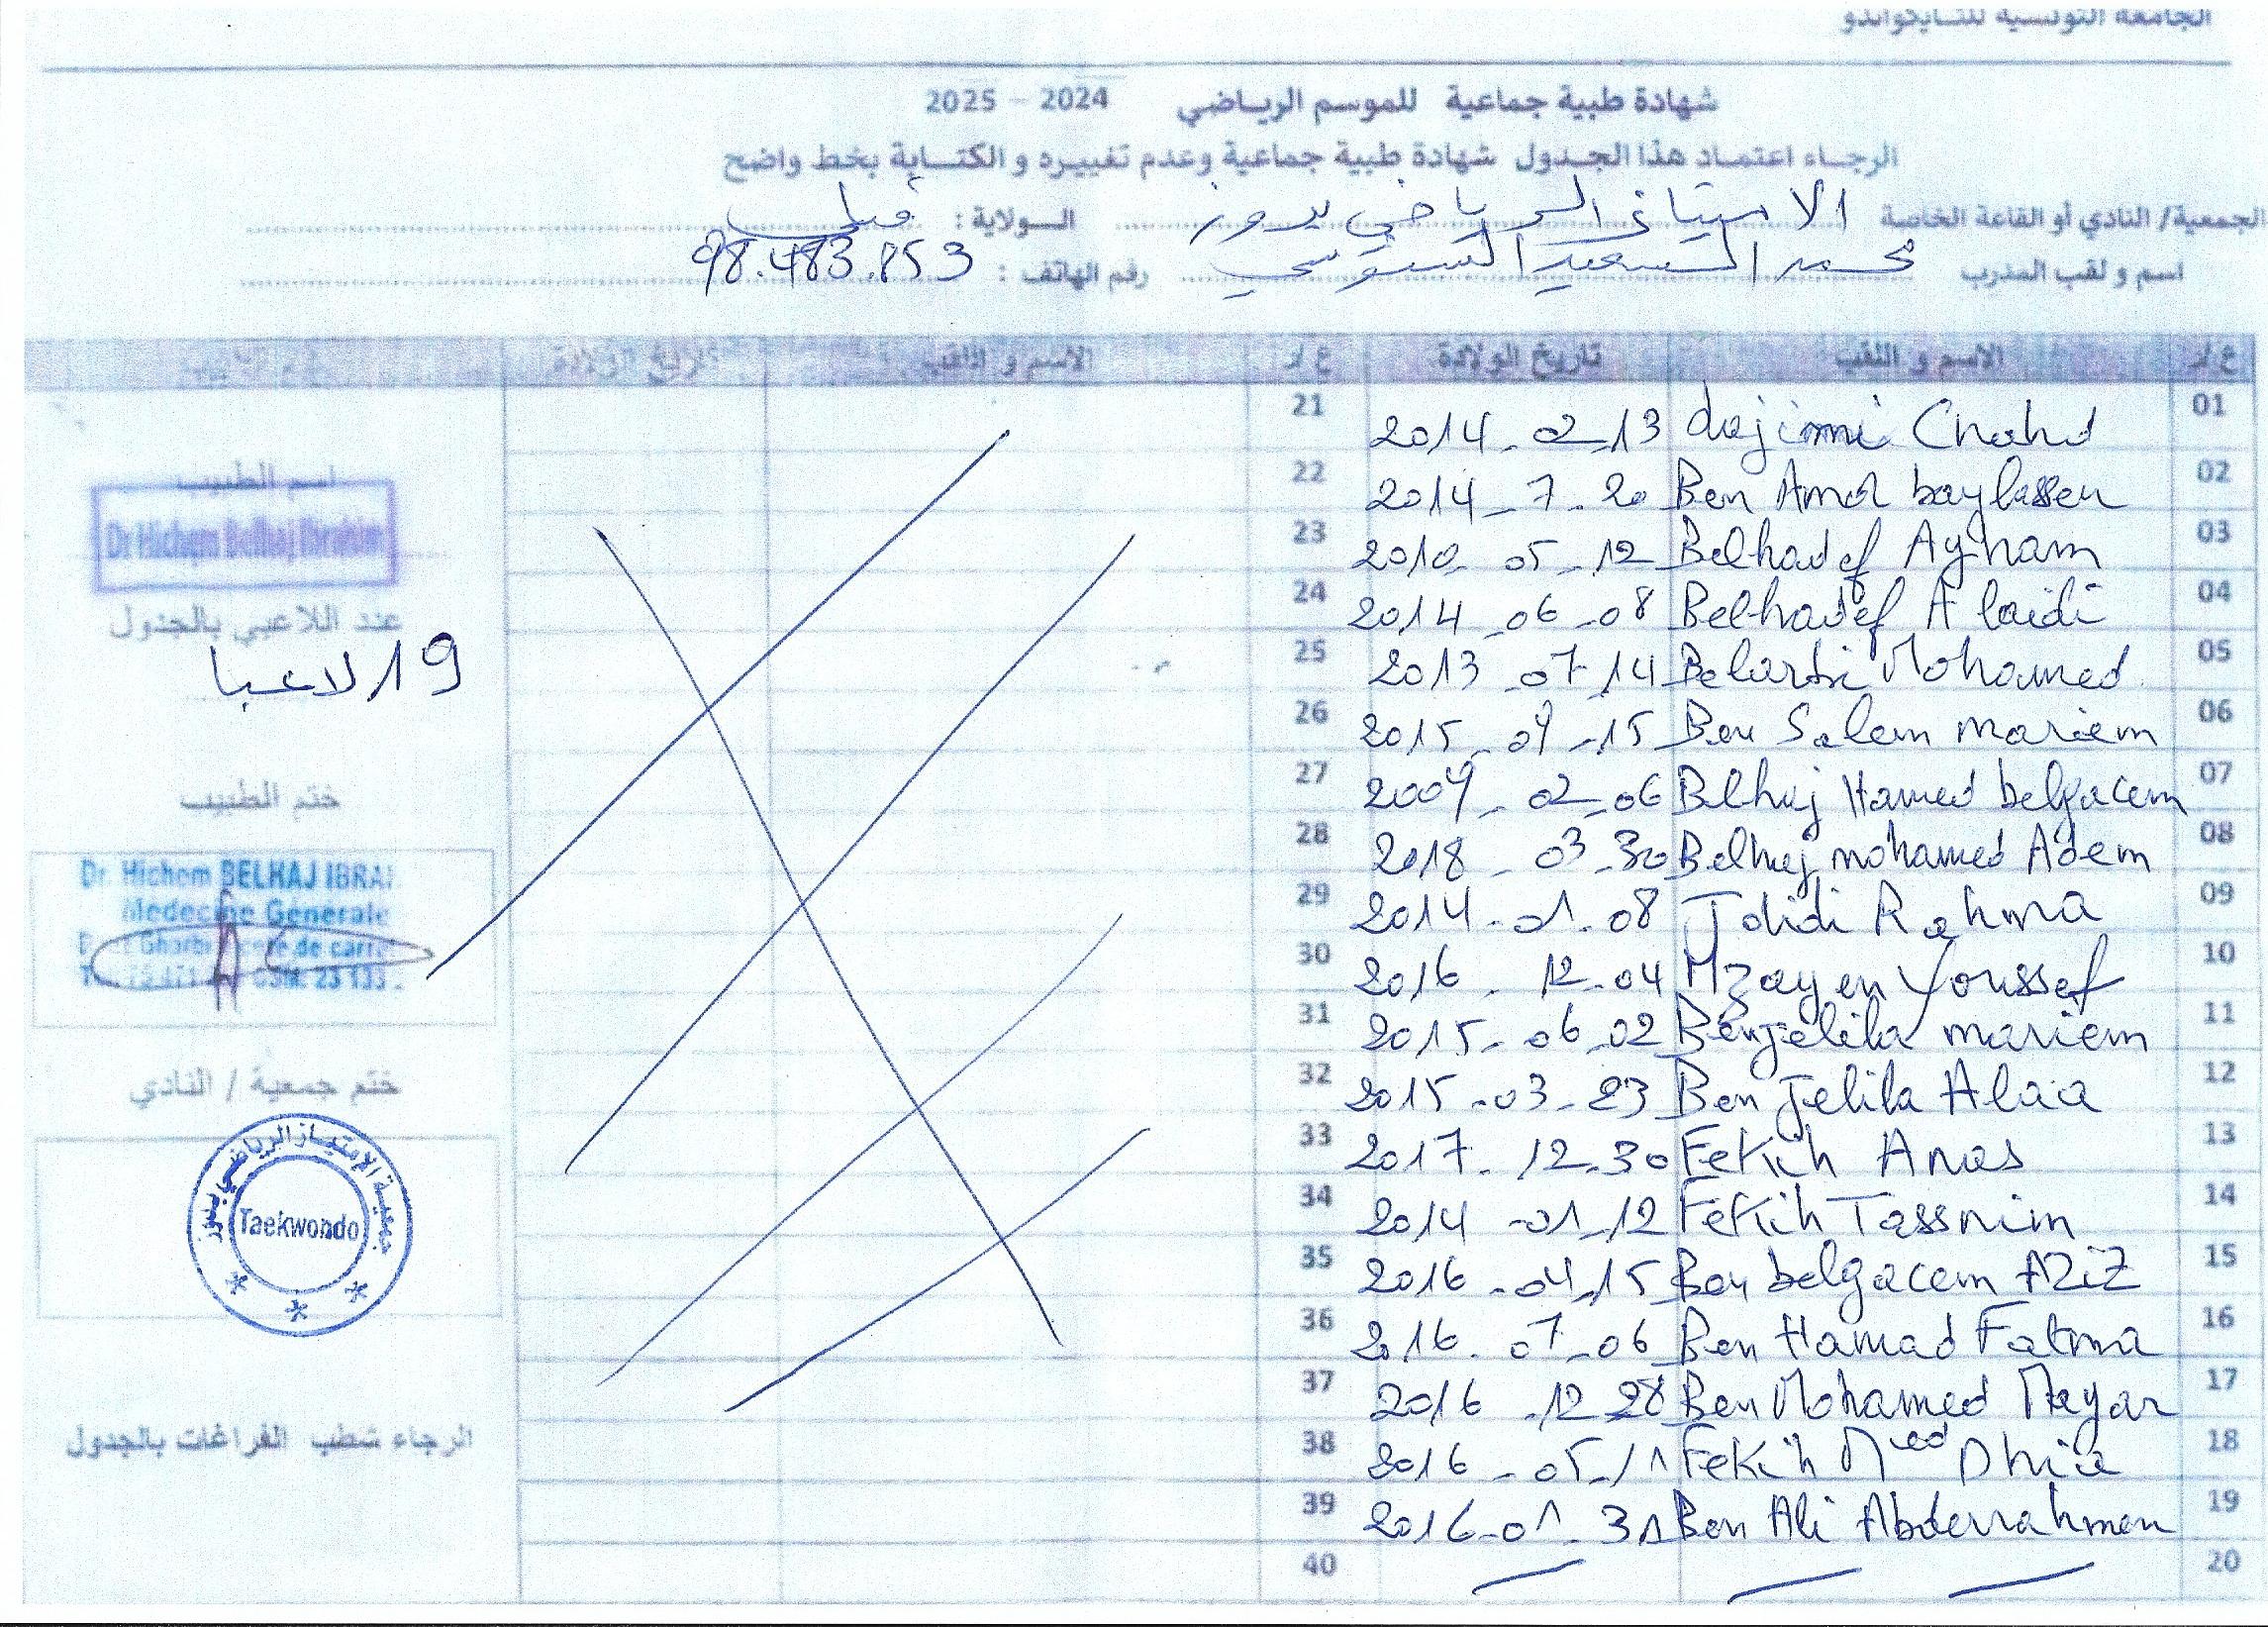 الجامعة التونسية للتايكواندو
شهادة طبية جماعية للموسم الرياضي 2024 - 2025
الرجاء اعتماد هذا الجدول شهادة طبية جماعية وعدم تغييره و الكتابة بخط واضح
الجمعية/ النادي أو القاعة الخاصة الامتياز الرياضي بدوز الولاية : قبلي
اسم و لقب المدرب محمد السعيد السنوسي رقم الهاتف : 98.483.853
ع/ر الاسم و اللقب تاريخ الولادة ع/ر الاسم و اللقب تاريخ الولادة
01 dajimi Chahd 2014-02-13 21
02 Ben Amor baylassen 2014-7-20 22
03 Belhadef Ayham 2010-05-12 23
04 Belhadef Alaidi 2014-06-08 24
05 Belarbi Mohamed 2013-07-14 25
06 Ben Salem mariem 2015-09-15 26
07 Belhaj Hamed belgacem 2009-02-06 27
08 Belhaj mohamed Adem 2018-03-30 28
09 Jdidi Rahma 2014-01-08 29
10 Mzayen Youssef 2016-12-04 30
11 Benjelila mariem 2015-06-02 31
12 Ben Jelila Alaa 2015-03-23 32
13 Fekih Anas 2017-12-30 33
14 Fekih Tassnim 2014-01-12 34
15 Ben belgacem AZiZ 2016-04-15 35
16 Ben Hamad Fatma 2016-07-06 36
17 Ben Mohamed Mayar 2016-12-28 37
18 Fekih Med Dhia 2016-05-11 38
19 Ben Ali Abderrahmen 2016-01-31 39
20 40
اسم الطبيب
Dr Hichem Belhaj Ibrahim
عدد اللاعبي بالجدول
19 لاعبا
ختم الطبيب
Dr. Hichem BELHAJ IBRAI
Medecine Générale
ختم جمعية / النادي
جمعية الإمتياز الرياضي بدوز
Taekwondo
الرجاء شطب الفراغات بالجدول